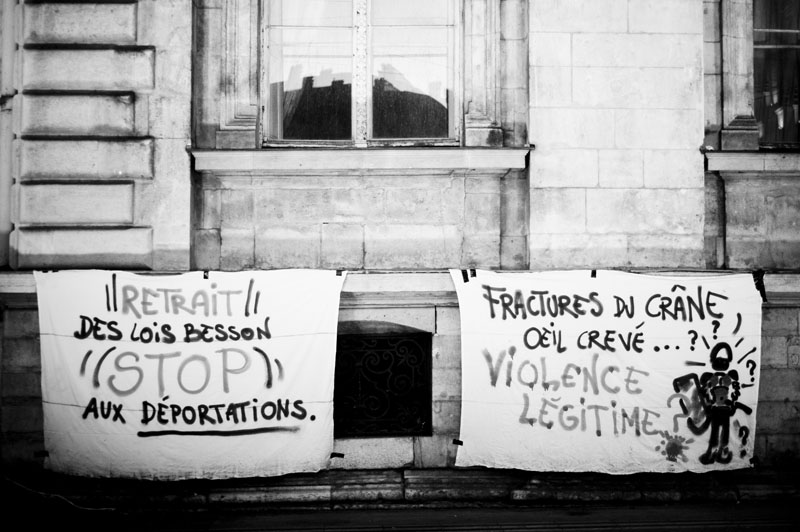 RETRAIT
DES LOIS BESSON
STOP
AUX DÉPORTATIONS.
FRACTURES DU CRÂNE,
OEIL CREVÉ...?
VIOLENCE
LÉGITIME?
? ? ? ?